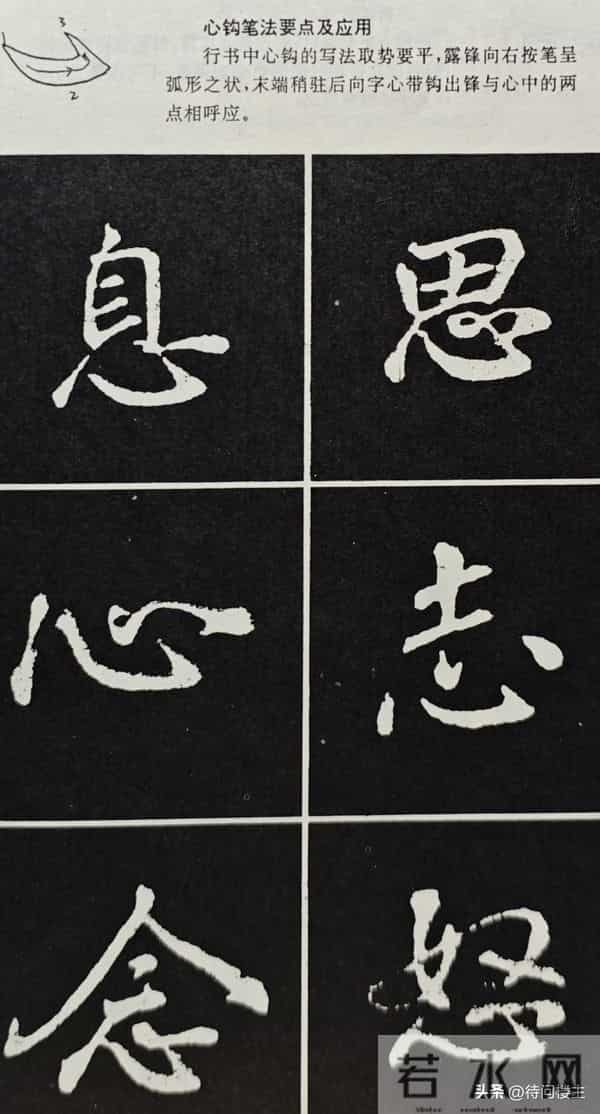 心钩笔法要点及应用
行书中心钩的写法取势要平，露锋向右按笔呈
弧形之状，末端稍驻后向字心带钩出锋与心中的两
点相呼应。
3
2
息 思
心 志
念 怒
若水网
头条@待问楼主